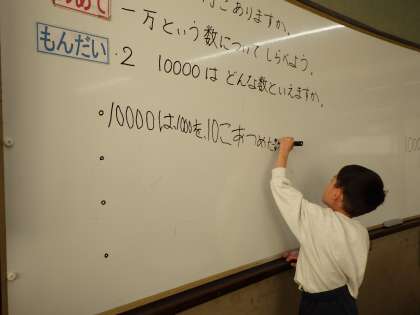 めあて こありますか。
一万という数についてしらべよう。
もんだい・2 10000は どんな数といえますか。
10000は、1000を、10こあつめた